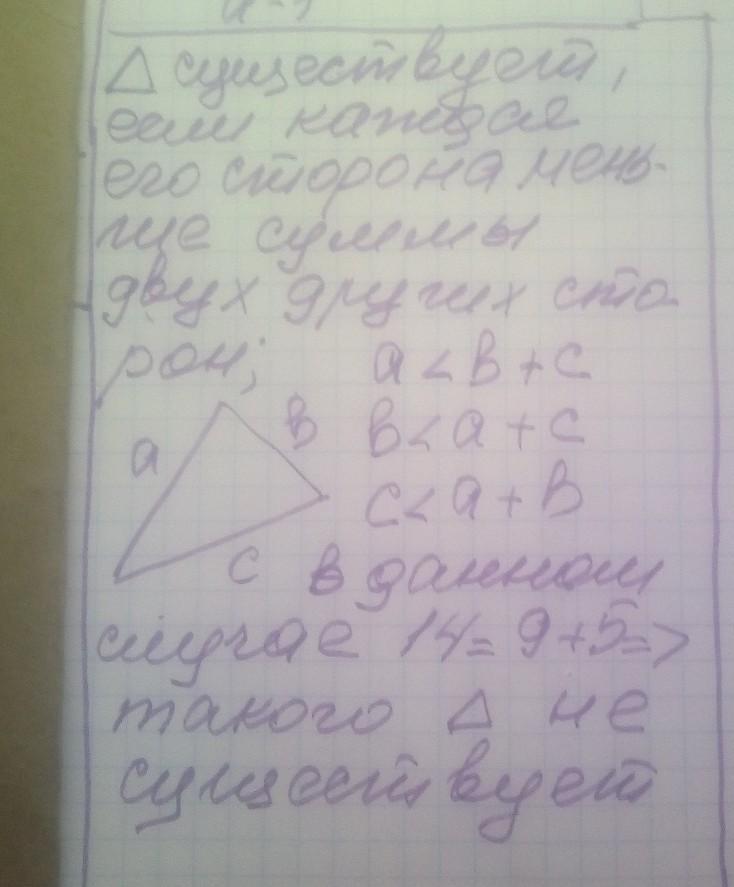 △ существует,
если каждая
его сторона мень-
ше суммы
двух других сто-
рон; a < в + c
a в в < a + c
c < a + в
c в данном
случае 14 = 9 + 5 =>
такого △ не
существует